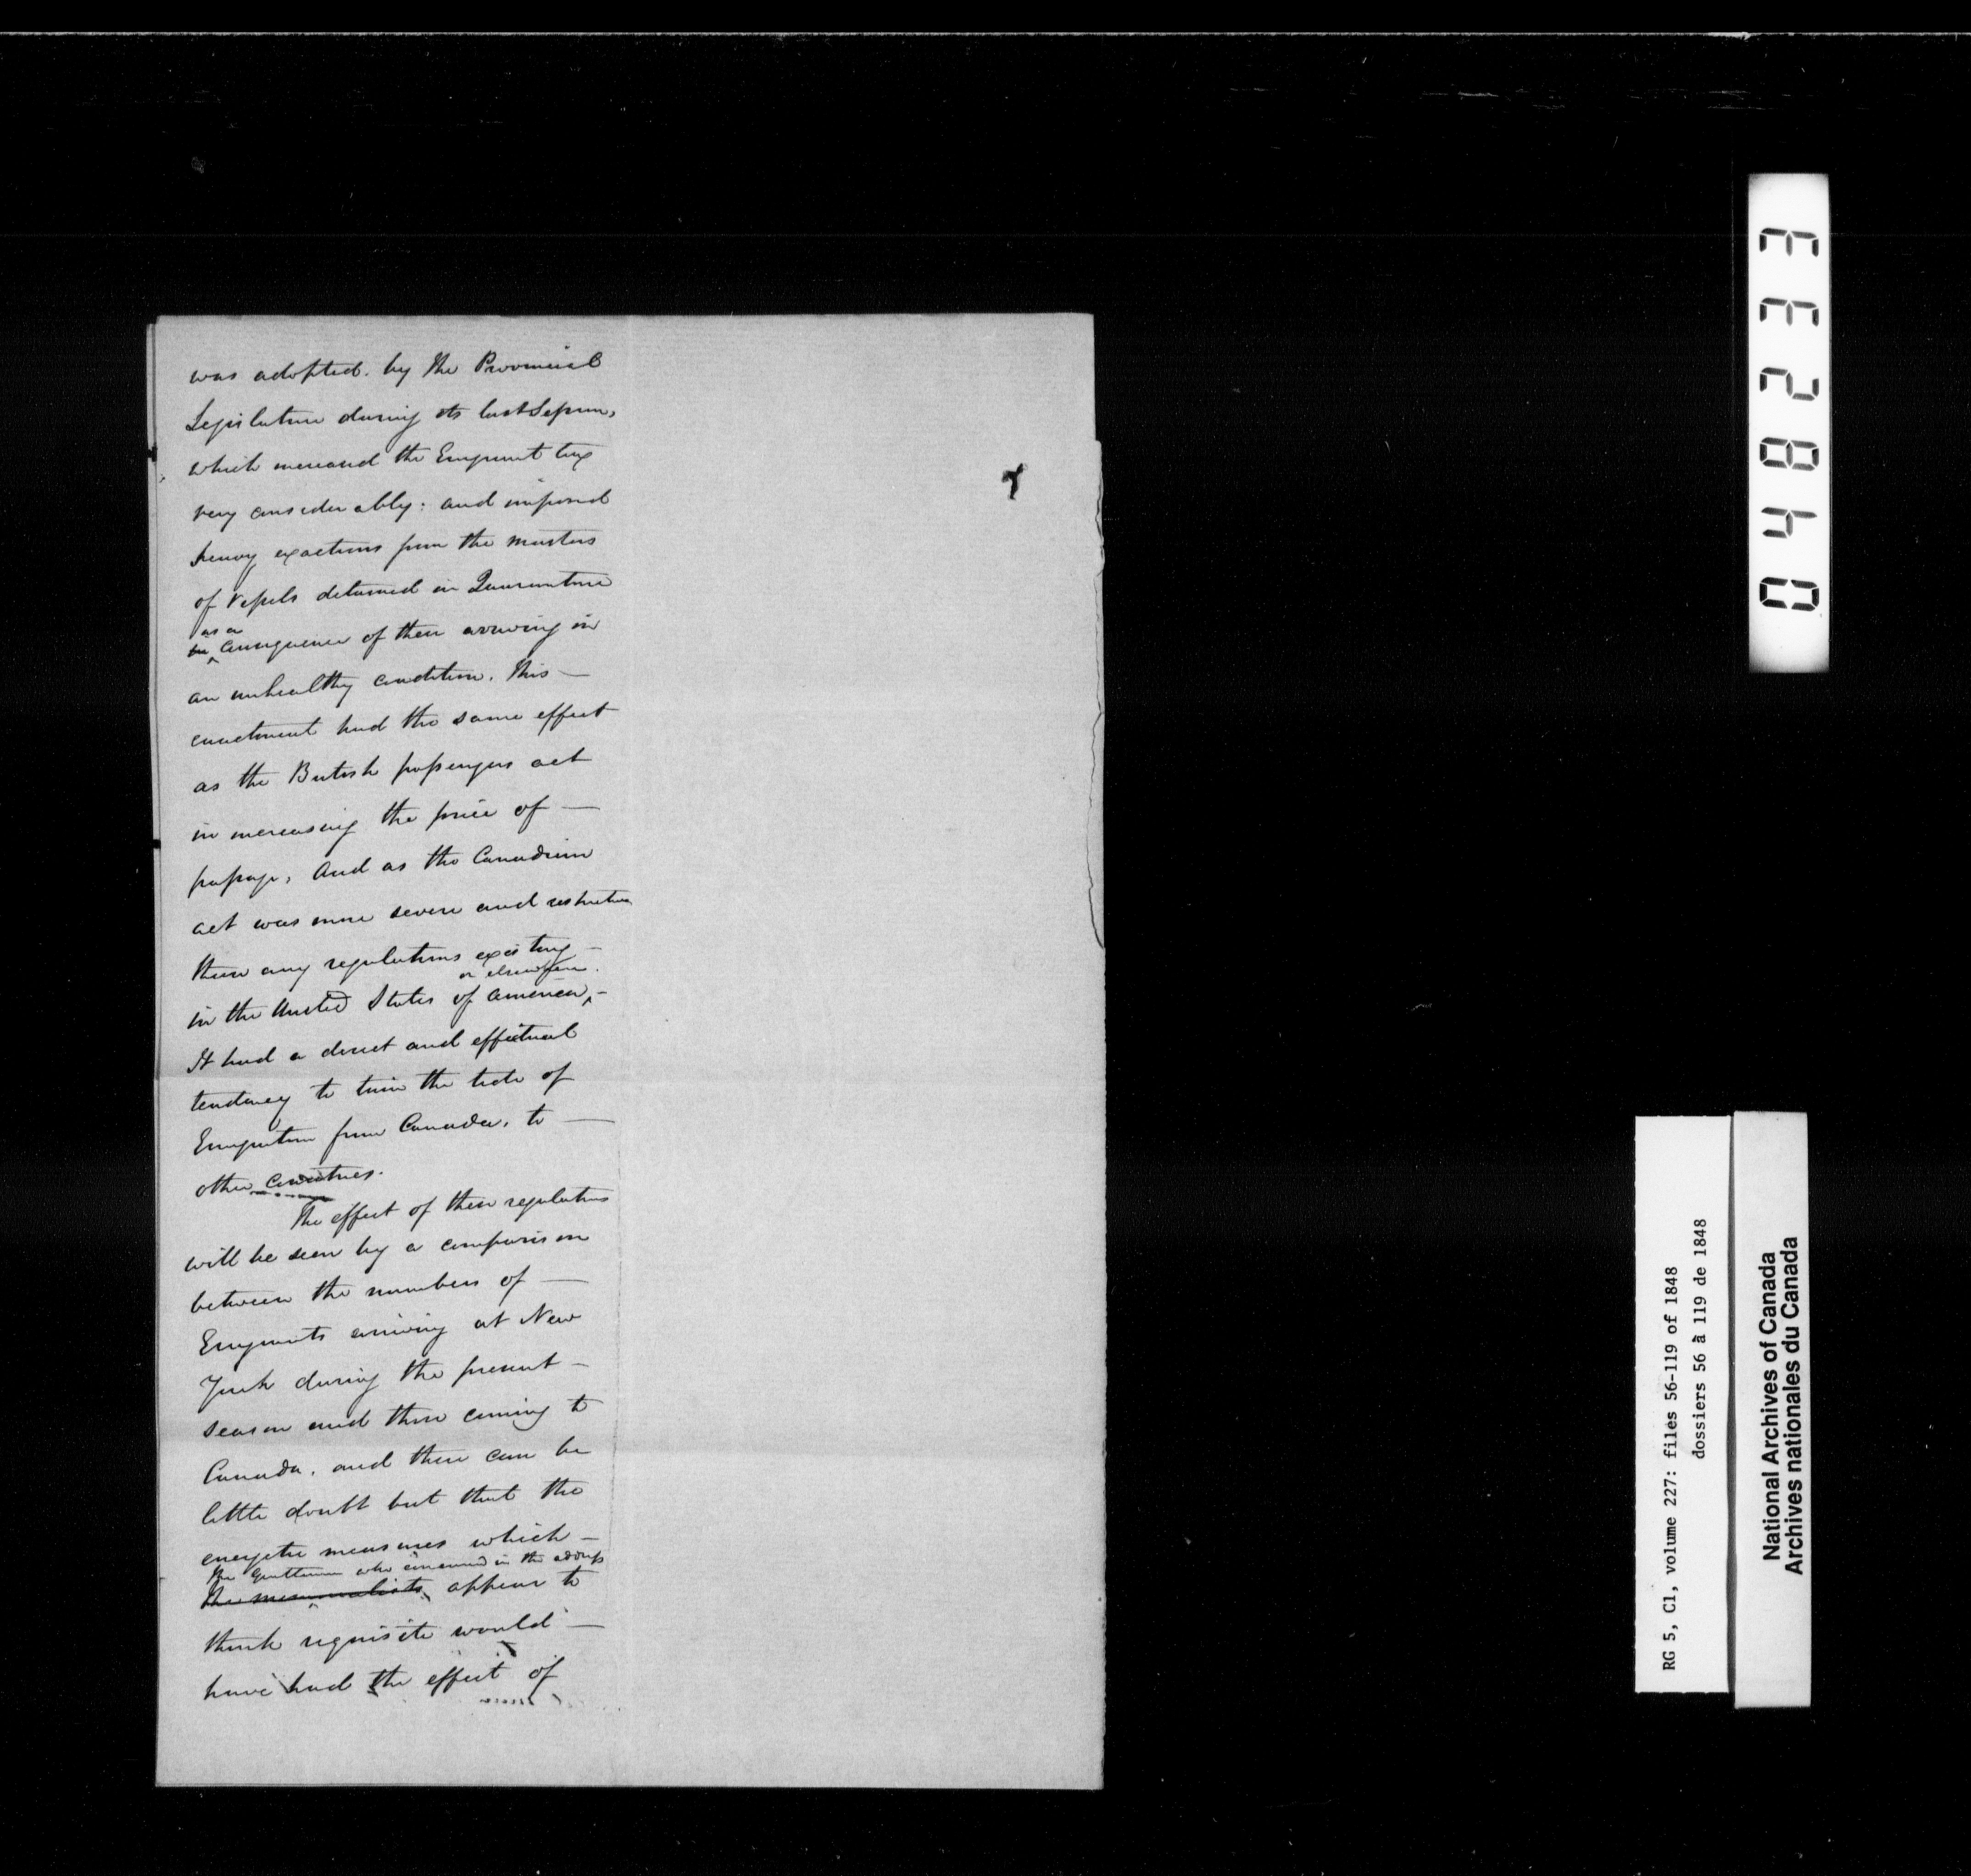 was adopted by the Provincial
Legislature during its last Session,
which increased the Emigrant tax
very considerably; and imposed
heavy exactions from the masters
of Vessels detained in Quarantine
as a
in consequence of their arriving in
an unhealthy condition. This —
enactment had the same effect
as the British passengers act
in increasing the price of —
passage, And as the Canadian
act was more severe and restrictive
than any regulations existing —
or elsewhere.
in the United States of America, —
It had a direct and effectual
tendency to turn the tide of
Emigration from Canada, to —
other countries.
The effect of these regulations
will be seen by a comparison
between the numbers of —
Emigrants arriving at New
York during the present —
season and those coming to
Canada, and there can be
little doubt but that the
energetic measures which —
the Gentlemen who concurred in the address
the memorialists appear to
think requisite would —
have had the effect of
048233
RG 5, C1, volume 227: files 56-119 of 1848
dossiers 56 à 119 de 1848
National Archives of Canada
Archives nationales du Canada